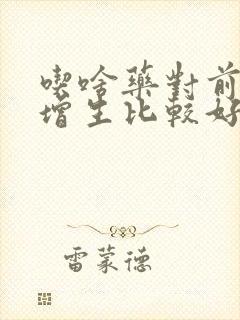 喫啥藥對前
增生比較好
雷蒙德